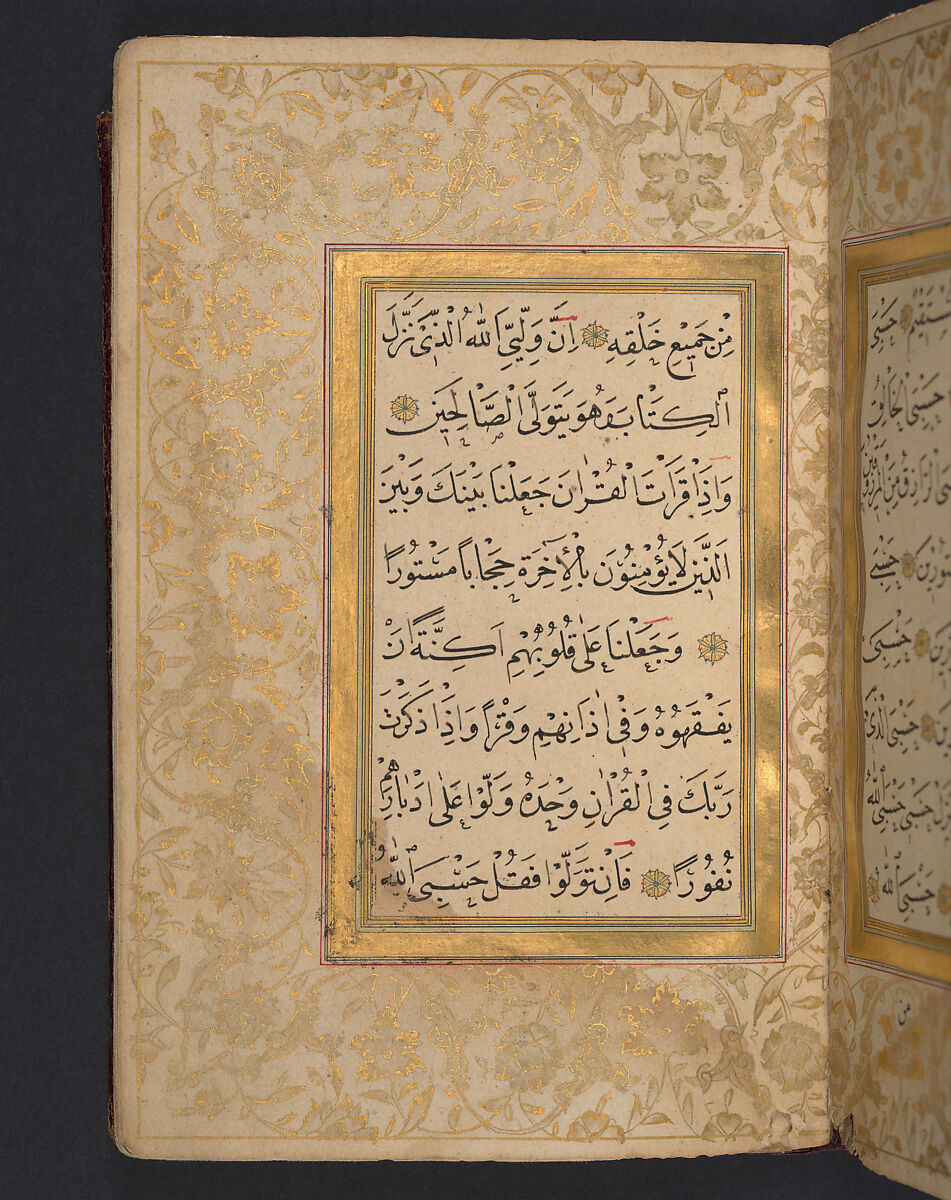 مِنْ جَمِيْعِ خَلْقِهِ اِنَّ وَلِيِّيَ اللّٰهُ الَّذِىْ نَزَّلَ
الْكِتَابَ وَهُوَ يَتَوَلَّى الصَّالِحِيْنَ
وَاِذَا قَرَاْتَ الْقُرْاٰنَ جَعَلْنَا بَيْنَكَ وَبَيْنَ
الَّذِيْنَ لَا يُؤْمِنُوْنَ بِالْاٰخِرَةِ حِجَابًا مَسْتُوْرًا
وَجَعَلْنَا عَلٰى قُلُوْبِهِمْ اَكِنَّةً اَنْ
يَفْقَهُوْهُ وَفِىْ اٰذَانِهِمْ وَقْرًا وَاِذَا ذَكَرْتَ
رَبَّكَ فِى الْقُرْاٰنِ وَحْدَهُ وَلَّوْا عَلٰى اَدْبَارِهِمْ
نُفُوْرًا فَاِنْ تَوَلَّوْا فَقُلْ حَسْبِىَ اللّٰهُ
حَسْبِىَ
حَسْبِىَ الْخَالِقُ
مِنَ الْمَرْزُوْقِيْنَ
حَسْبِىَ
حَسْبِىَ
حَسْبِىَ الَّذِىْ
حَسْبِىْ حَسْبِىَ اللّٰهُ
حَسْبِىَ اللّٰهُ
من